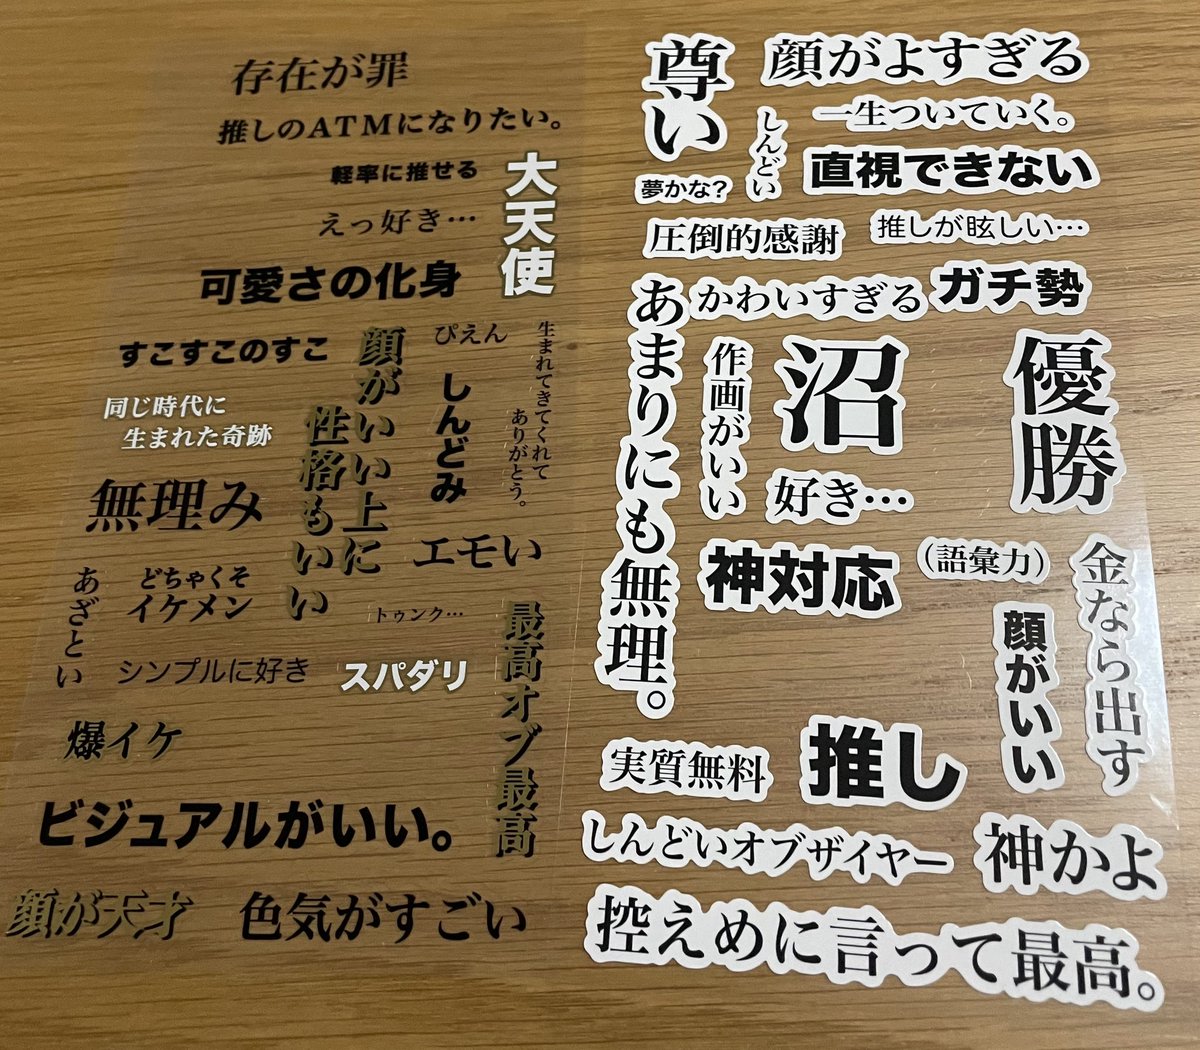 存在が罪
推しのATMになりたい。
軽率に推せる
大天使
えっ好き…
可愛さの化身
すこすこのすこ
顔がいい上に
性格もいい
ぴえん
しんどみ
生まれてきてくれて
ありがとう。
同じ時代に
生まれた奇跡
無理み
エモい
あざとい
どちゃくそ
イケメン
トゥンク…
シンプルに好き
スパダリ
最高オブ最高
爆イケ
ビジュアルがいい。
顔が天才
色気がすごい
尊い
顔がよすぎる
しんどい
一生ついていく。
直視できない
夢かな?
圧倒的感謝
推しが眩しい…
あまりにも無理。
かわいすぎる
ガチ勢
作画がいい
沼
優勝
好き…
神対応
(語彙力)
金なら出す
顔がいい
実質無料
推し
しんどいオブザイヤー
神かよ
控えめに言って最高。